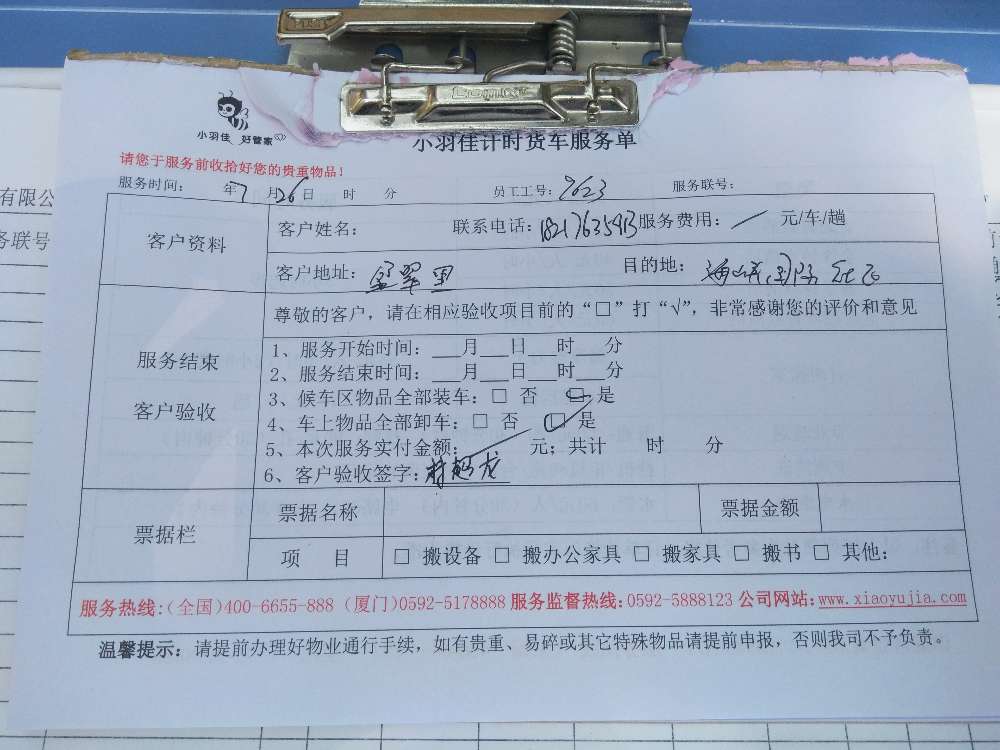 小羽佳 好管家
小羽佳计时货车服务单
请您于服务前收拾好您的贵重物品!
服务时间: 年7月26日 时 分 员工工号:9623 服务联号:
有限公
务联号
客户资料
客户姓名: 联系电话: 服务费用: 元/车/趟
客户地址: 翠里 目的地:
服务结束
客户验收
尊敬的客户,请在相应验收项目前的“□”打“√”,非常感谢您的评价和意见
1、服务开始时间:___月___日___时___分
2、服务结束时间:___月___日___时___分
3、候车区物品全部装车:□ 否 □ 是
4、车上物品全部卸车:□ 否 □ 是
5、本次服务实付金额: 元;共计 时 分
6、客户验收签字:
票据栏
票据名称 票据金额
项 目 □ 搬设备 □ 搬办公家具 □ 搬家具 □ 搬书 □ 其他:
服务热线:(全国)400-6655-888 (厦门)0592-5178888 服务监督热线:0592-5888123 公司网站:www.xiaoyujia.com
温馨提示:请提前办理好物业通行手续,如有贵重、易碎或其它特殊物品请提前申报,否则我司不予负责。